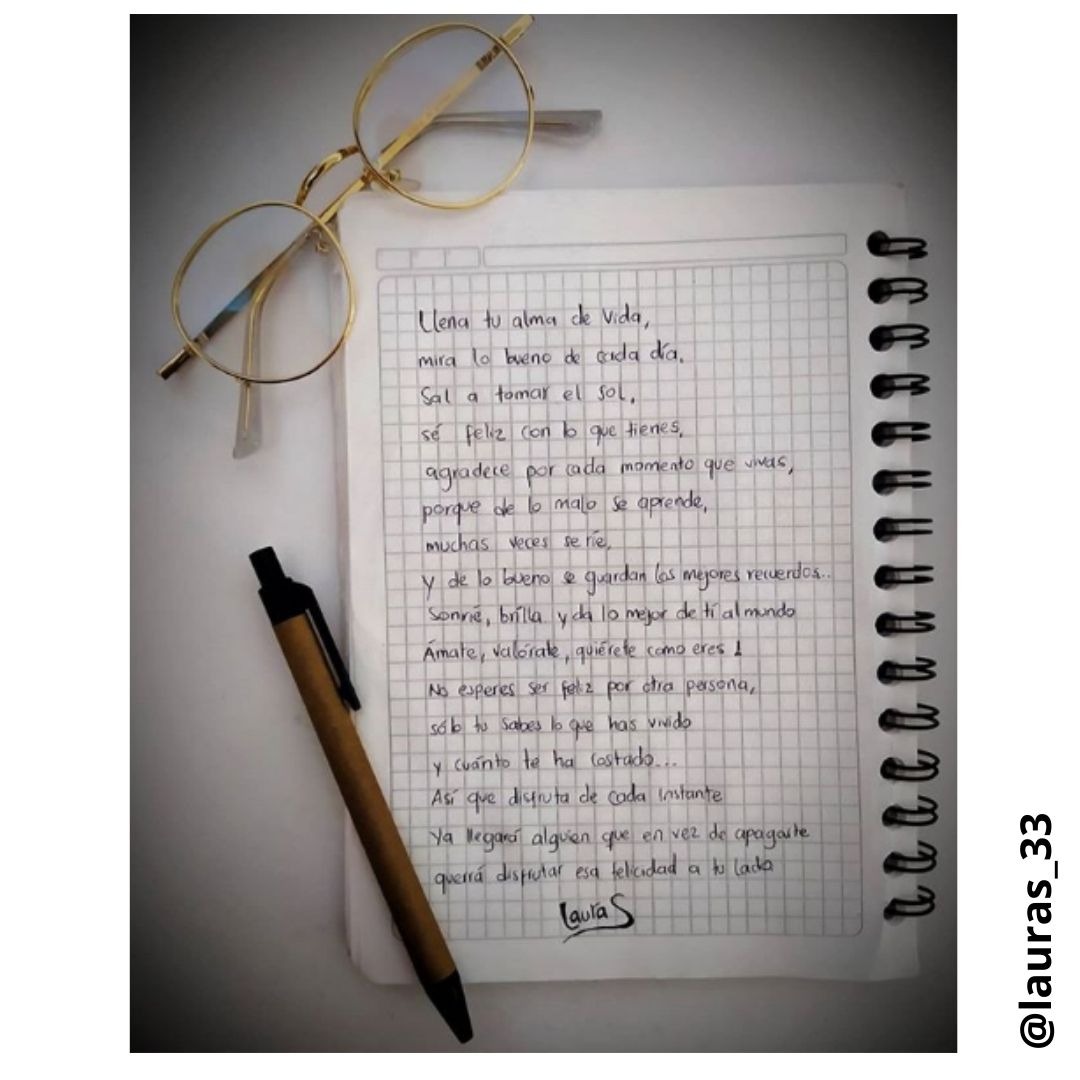 Llena tu alma de vida,
mira lo bueno de cada día.
Sal a tomar el sol,
sé feliz con lo que tienes,
agradece por cada momento que vivas,
porque de lo malo se aprende,
muchas veces se ríe,
y de lo bueno se guardan los mejores recuerdos..
Sonríe, brilla y da lo mejor de tí al mundo
Ámate, valórate, quiérete como eres!
No esperes ser feliz por otra persona,
sólo tu sabes lo que has vivido
y cuánto te ha costado...
Así que disfruta de cada instante
Ya llegará alguien que en vez de apagarte
querrá disfrutar esa felicidad a tu lado
Laura S
@lauras_33